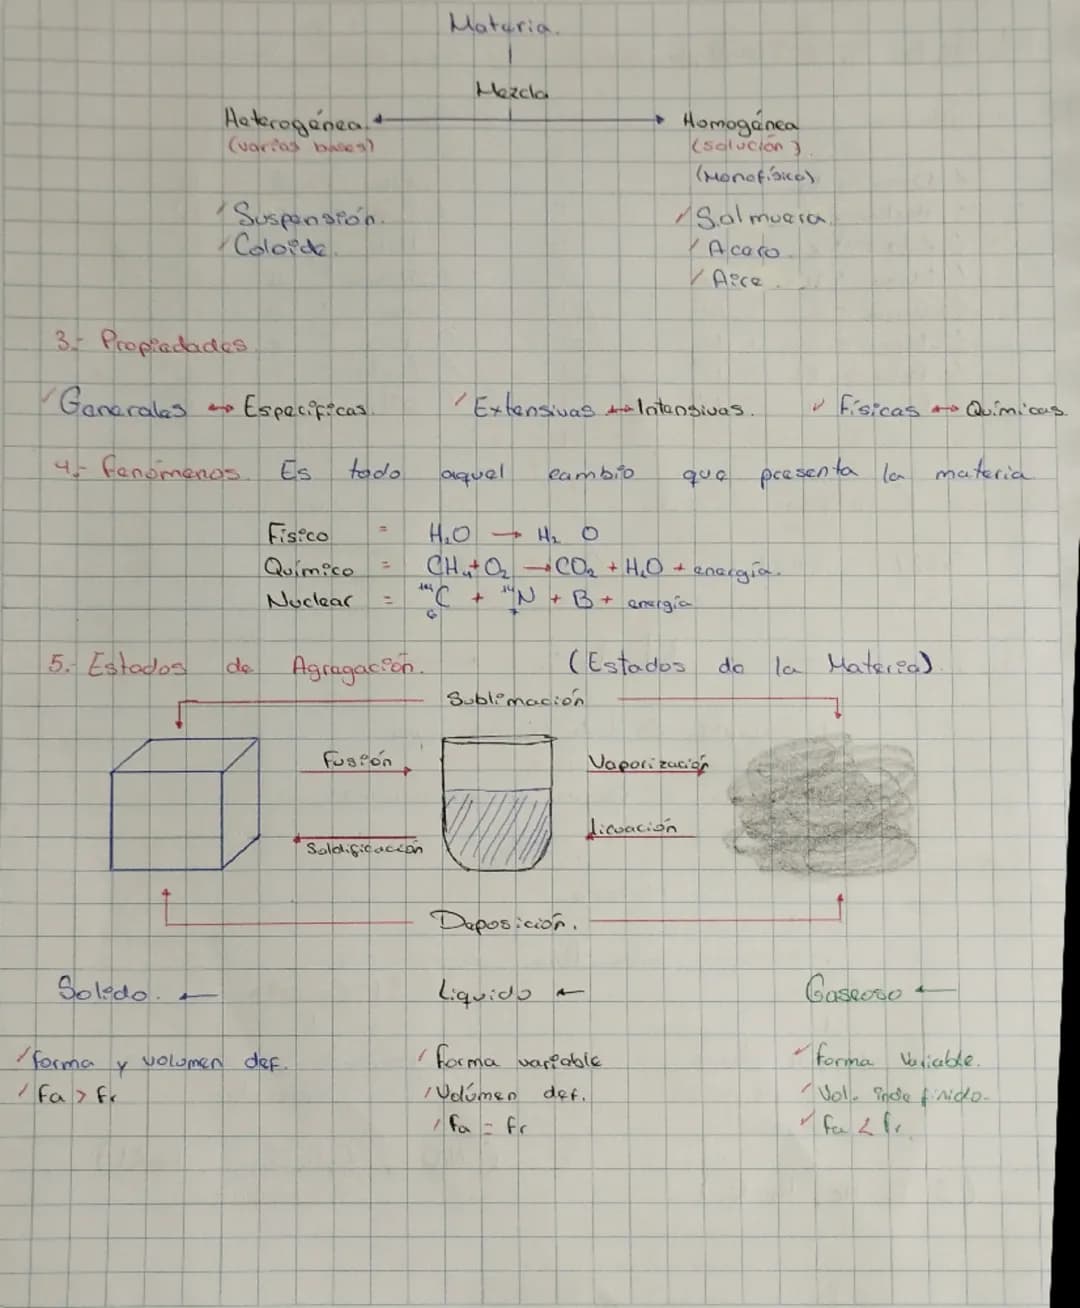 Materia.
Mezcla
Heterogénea. Homogénea
(varias bases) (solución)
(Monofísica)
Suspensión. Salmuera.
Coloide. Acero.
Aire.
3.- Propiedades
Generales ↔ Especificas. Extensivas ↔ Intensivas. Físicas ↔ Químicas.
4.- fenómenos. Es todo aquel cambio que presenta la materia
Físico = H₂O → H₂ O
Químico = CH₄+O₂ → CO₂ + H₂O + energía.
Nuclear = ¹⁴₆C + ¹⁴₇N + B + energía
5.- Estados de Agregación. (Estados de la Materia).
Sublimación
Fusión Vaporización
licuación
Soldificación
Deposición.
Solido. ← Liquido ← Gaseoso ←
forma y volumen def. forma variable forma Variable.
fa > fr Volúmen def. Vol. indefinido.
fa = fr fa < fr.